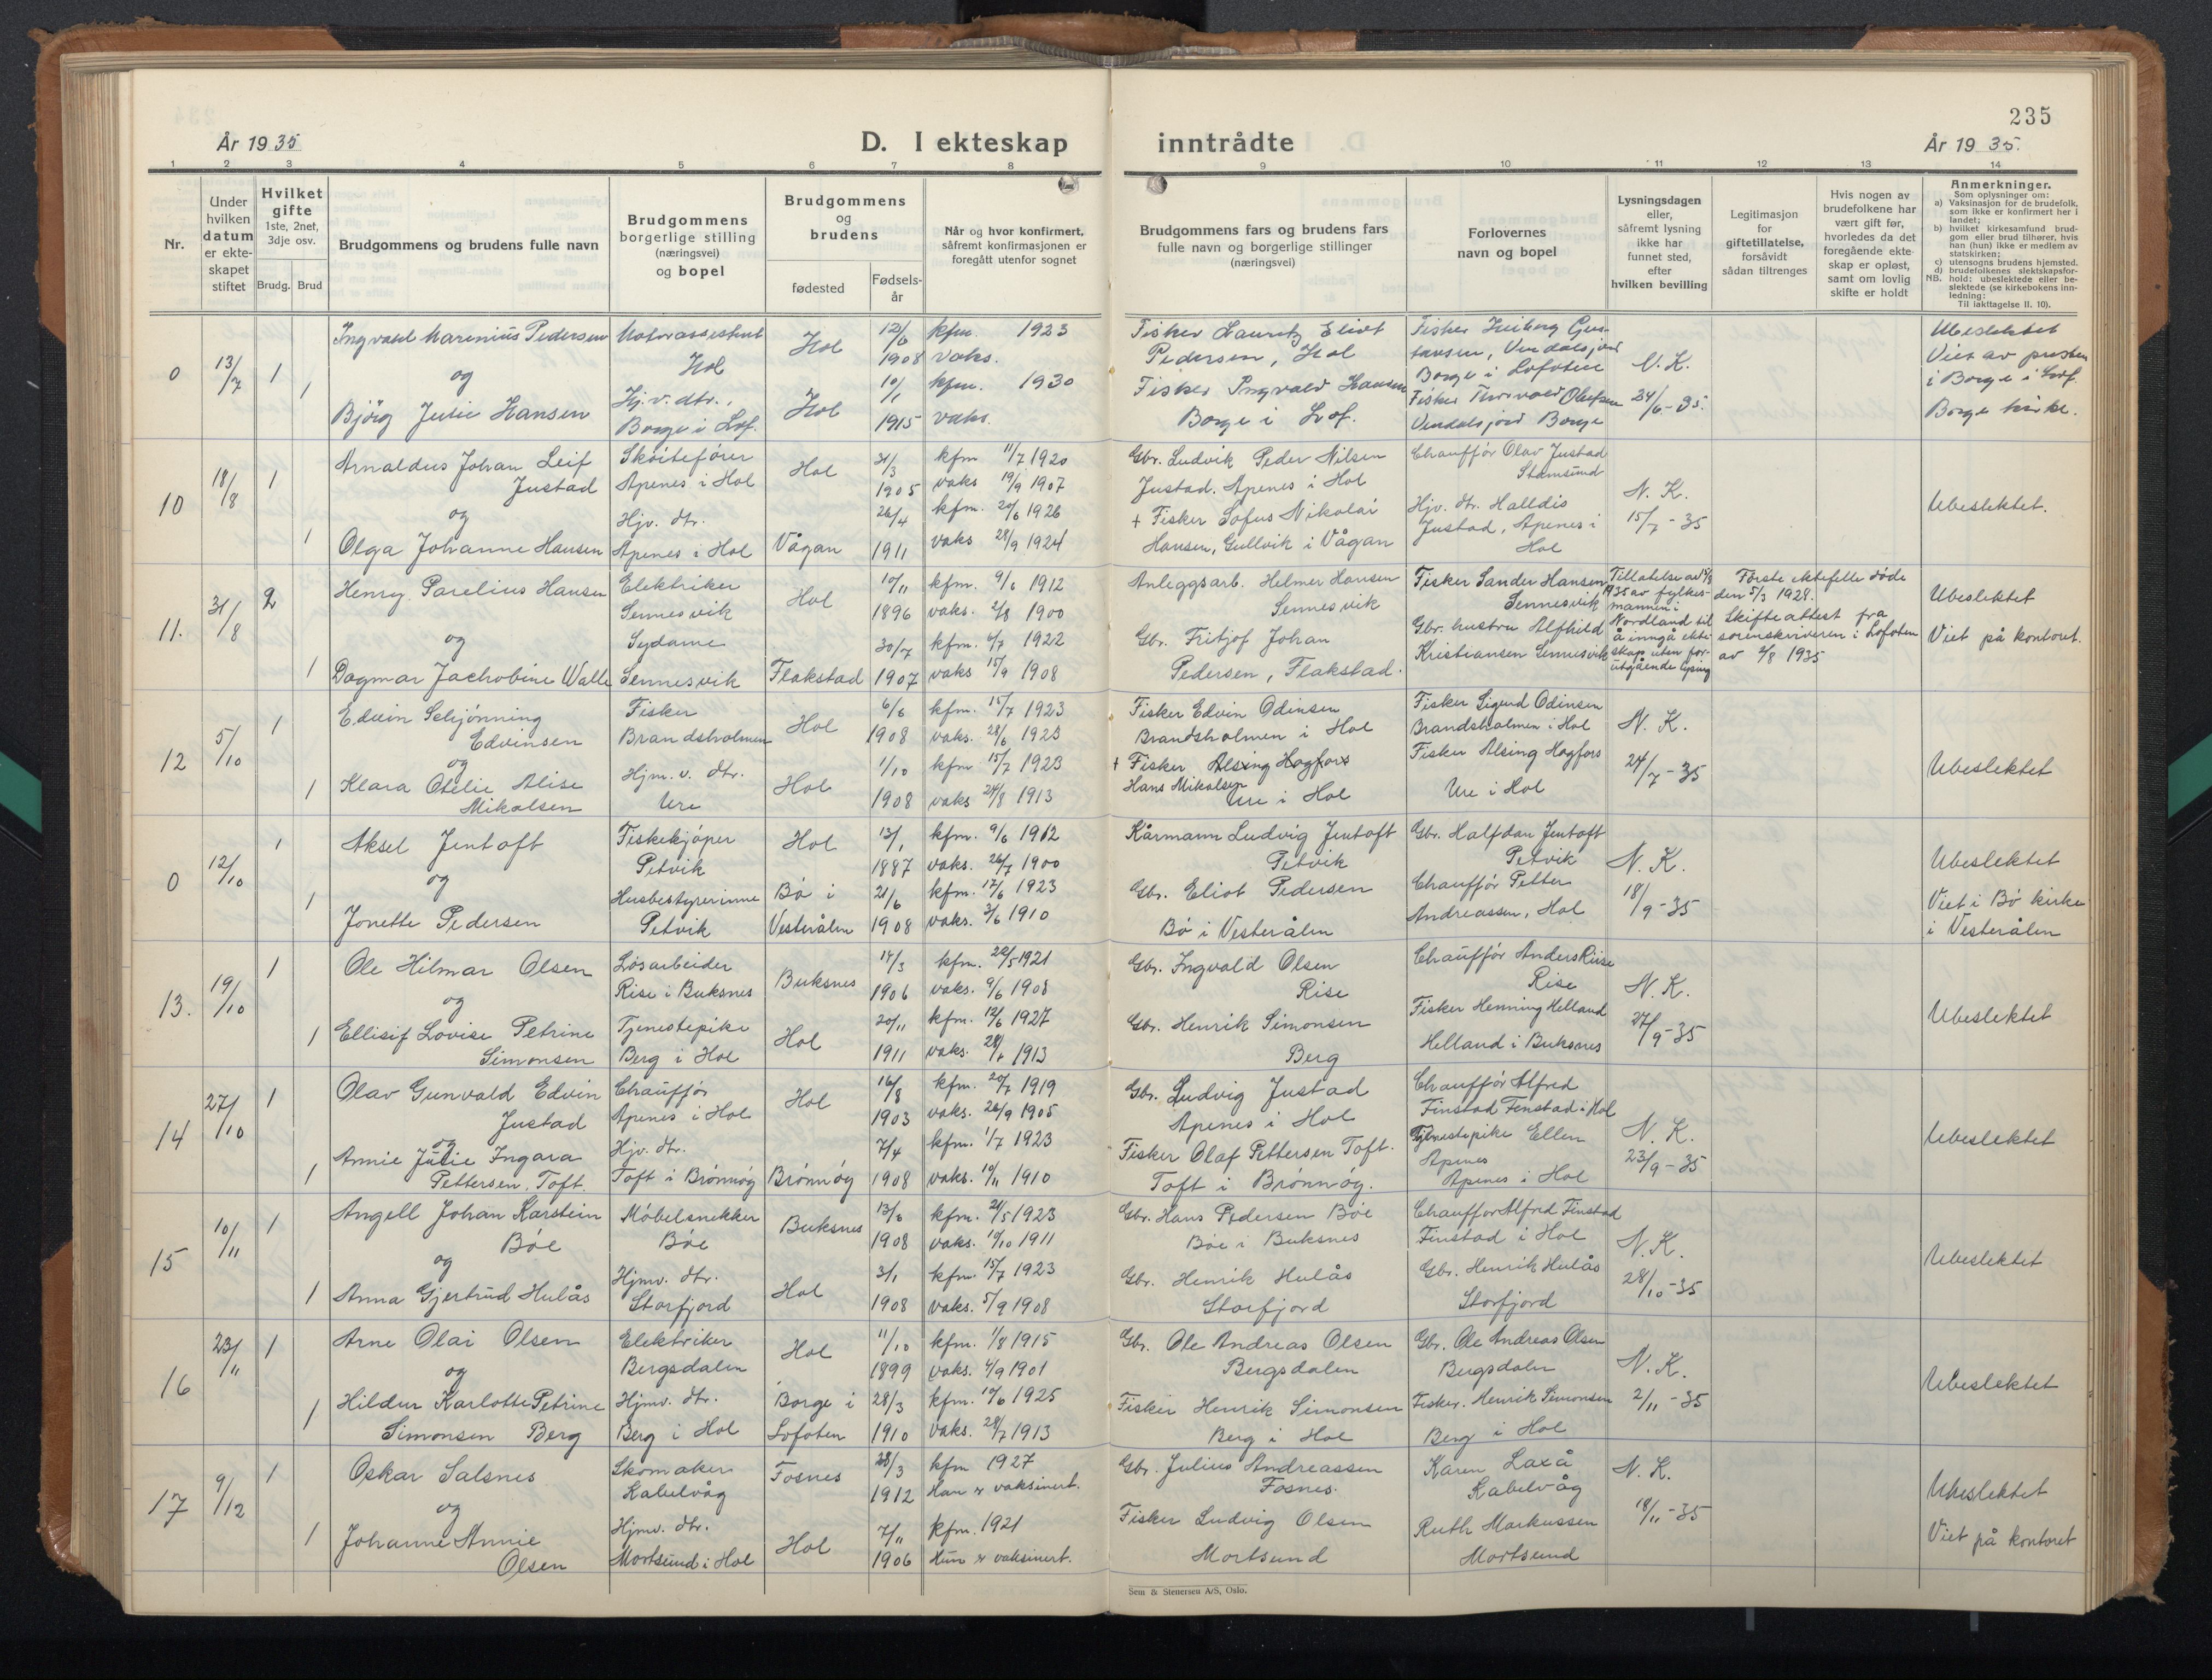 235
År 1935
D. I ekteskap inntrådte
År 1935.
1 2 3 4 5 6 7 8 9 10 11 12 13 14
Nr.
Under
hvilken
datum
er ekte-
skapet
stiftet
Hvilket
gifte
1ste, 2net,
3dje osv.
Brudg. Brud
Brudgommens og brudens fulle navn
Brudgommens
borgerlige stilling
(næringsvei)
og bopel
Brudgommens
og
brudens
fødested
Fødsels-
år
Når og hvor konfirmert,
såfremt konfirmasjonen er
foregått utenfor sognet
Brudgommens fars og brudens fars
fulle navn og borgerlige stillinger
(næringsvei)
Forlovernes
navn og bopel
Lysningsdagen
eller,
såfremt lysning
ikke har
funnet sted,
efter
hvilken bevilling
Legitimasjon
for
giftetillatelse,
forsåvidt
sådan tiltrenges
Hvis nogen av
brudefolkene har
vært gift før,
hvorledes da det
foregående ekte-
skap er opløst,
samt om lovlig
skifte er holdt
Anmerkninger.
Som oplysninger om:
a) Vaksinasjon for de brudefolk,
som ikke er konfirmert her i
landet;
b) hvilket kirkesamfund brud-
gom eller brud tilhører, hvis
han (hun) ikke er medlem av
statskirken;
c) utensogns brudens hjemsted.
d) brudefolkenes slektskapsfor-
hold: ubeslektede eller be-
slektede (se kirkebokens inn-
ledning:
NB. Til iakttagelse II. 10).
0
13/7
1
1
Ingvald Marenius Pedersen
og
Bjørg Julie Hansen
Motorassistent
Hol
Hj.v. dtr.,
Borge i Lof.
Hol
Hol
12/6
1908
10/1
1915
kfm. 1923
vaks.
kfm. 1930
vaks.
Fisker Lauritz Eliot
Pedersen, Hol
Fisker Ingvald Hansen
Borge i Lof.
Fisker
Borge i Lofoten
Fisker Thorvald Olufsen
Borge
N. K.
24/6-35.
Ubeslektet
Viet av presten
i Borge i Lof.
Borge kirke.
10
18/8
1
1
Arnaldus Johan Leif
Justad
og
Olga Johanne Hansen
Skøitefører
Apenes i Hol
Hjv. dtr.
Apenes i Hol
Hol
Vågan
31/3
1905
26/4
1911
kfm 11/7 1920
vaks 19/9 1907
kfm. 20/6 1926
vaks 28/9 1924
Gbr. Ludvik Peder Nilsen
Justad. Apenes i Hol
+ Fisker Sofus Nikolai
Hansen, Gullvik i Vågan
Chauffør Olav Justad
Stamsund
Hjv. dtr. Halldis
Justad, Apenes i
Hol
N. K.
15/7-35
Ubeslektet.
11.
31/8
2
1
Henry Parelius Hansen
og
Dagmar Jachobine Walle
Elektriker
Sennesvik
Sydame
Sennesvik
Hol
Flakstad
10/11
1896
30/7
1907
kfm. 9/6 1912
vaks. 2/8 1900
kfm. 4/7 1922
vaks 15/9 1908
Anleggsarb. Helmer Hansen
Sennesvik
Gbr. Fritjof Johan
Pedersen, Flakstad.
Fisker Sander Hansen
Sennesvik
Gbr. hustru Alfhild
Kristiansen Sennesvik
Tillatelse av
1935 av fylkes-
mannen i
Nordland til
å inngå ekte-
skap uten for-
utgående lysing
Første ektefelle døde
den 5/3 1928.
Skifteattest fra
sorenskriveren i Lofoten
av 2/8 1935
Ubeslektet
Viet på kontoret.
12
5/10
1
1
Edvin Schjønning
Edvinsen
og
Klara Otelie Alise
Mikalsen
Fisker
Brandsholmen
Hjm. v. dtr.
Ure
Hol
Hol
6/6
1908
1/10
1908
kfm. 15/7 1923
vaks. 28/6 1923
kfm 15/7 1923
vaks 24/8 1913
Fisker Edvin Odinsen
Brandsholmen i Hol
+ Fisker Alsing Hagfors
Hans Mikalsen
Ure i Hol
Fisker Sigurd Odinsen
Brandsholmen i Hol
Fisker Alsing Hagfors
Ure i Hol
N. K.
24/7-35
Ubeslektet
0
12/10
1
1
Aksel Jentoft
og
Jonette Pedersen
Fiskekjøper
Petvik
Husbestyrerinne
Petvik
Hol
Bø i
Vesterålen
13/1
1887
21/6
1908
kfm. 9/6 1912
vaks. 26/7 1900
kfm. 17/6 1923
vaks. 3/6 1910
Kårmann Ludvig Jentoft
Petvik
Gbr. Eliot Pedersen
Bø i Vesterålen
Gbr. Halfdan Jentoft
Petvik
Chauffør Petter
Andreassen, Hol
N. K.
18/9-35
Ubeslektet
Viet i Bø kirke
i Vesterålen
13.
19/10
1
1
Ole Hilmar Olsen
og
Ellisif Lovise Petrine
Simonsen
Løsarbeider
Rise i Buksnes
Tjenestepike
Berg i Hol
Buksnes
Hol
14/3
1906
20/11
1911
kfm. 22/5 1921
vaks. 9/6 1908
kfm. 12/6 1927
vaks. 28/7 1913
Gbr. Ingvald Olsen
Rise
Gbr. Henrik Simonsen
Berg
Chauffør Anders Riise
Rise
Fisker Henning Helland
Helland i Buksnes
N. K.
27/9-35
Ubeslektet
14
27/10
1
1
Olav Gunvald Edvin
Justad
og
Annie Julie Ingara
Pettersen Toft.
Chauffør
Apenes i Hol
Hjv. dtr.
Toft i Brønnøy
Hol
Brønnøy
16/8
1903
7/4
1908
kfm. 20/7 1919
vaks. 26/9 1905
kfm. 1/7 1923
vaks. 10/11 1910
Gbr. Ludvig Justad
Apenes i Hol
Fisker Olaf Pettersen Toft.
Toft i Brønnøy.
Chauffør Alfred
Finstad Finstad i Hol
Tjenestepike Ellen
Apenes
Apenes i Hol
N. K.
23/9-35
Ubeslektet
15
10/11
1
1
Angell Johan Karstein
Bøe
og
Anna Gjertrud Hulås
Møbelsnekker
Bøe
Hjmv. dtr.
Storfjord
Buksnes
Hol
13/6
1908
3/1
1908
kfm. 21/5 1923
vaks. 19/10 1911
kfm. 15/7 1923
vaks. 5/9 1908
Gbr. Hans Pedersen Bøe
Bøe i Buksnes
Gbr. Henrik Hulås
Storfjord
Chauffør Alfred Finstad
Finstad i Hol
Gbr. Henrik Hulås
Storfjord
N. K.
28/10-35
Ubeslektet
16
23/11
1
1
Arne Olai Olsen
og
Hildur Karlotte Petrine
Simonsen Berg
Elektriker
Bergsdalen
Hjmv. dtr.
Berg i Hol
Hol
Borge i
Lofoten
11/10
1899
28/3
1910
kfm. 1/8 1915
vaks. 4/9 1901
kfm. 10/6 1925
vaks. 28/7 1913
Gbr. Ole Andreas Olsen
Bergsdalen
Fisker Henrik Simonsen
Berg i Hol
Gbr. Ole Andreas Olsen
Bergsdalen
Fisker. Henrik Simonsen
Berg i Hol
N. K.
2/11-35
Ubeslektet
17
9/12
1
1
Oskar Salsnes
og
Johanne Annie
Olsen
Skomaker
Kabelvåg
Hjmv. dtr.
Mortsund i Hol
Fosnes
Hol
28/3
1912
7/11
1906
kfm 1927
Han er vaksinert.
kfm. 1921
Hun er vaksinert.
Gbr. Julius Andreassen
Fosnes.
Fisker Ludvig Olsen
Mortsund
Karen Laxå
Kabelvåg
Ruth Markussen
Mortsund
N. K.
18/11-35
Ubeslektet
Viet på kontoret
Sem & Stenersen A/S, Oslo.